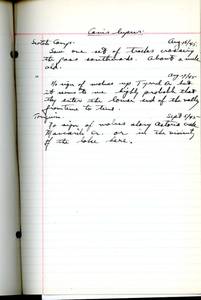 Canis lupus
Scotch Camp - Aug 16/45
Saw one set of tracks crossing
the pass southwards. About a week
old.
Aug 17/45
No sign of wolves up Tyrrel Cr but
it seems to me highly probable that
they enter the lower end of the valley
from time to time.
Tonquin Sept 9/45
No sign of wolves along Astoria
Maccarib Cr. or in the vicinity
of the lake here.